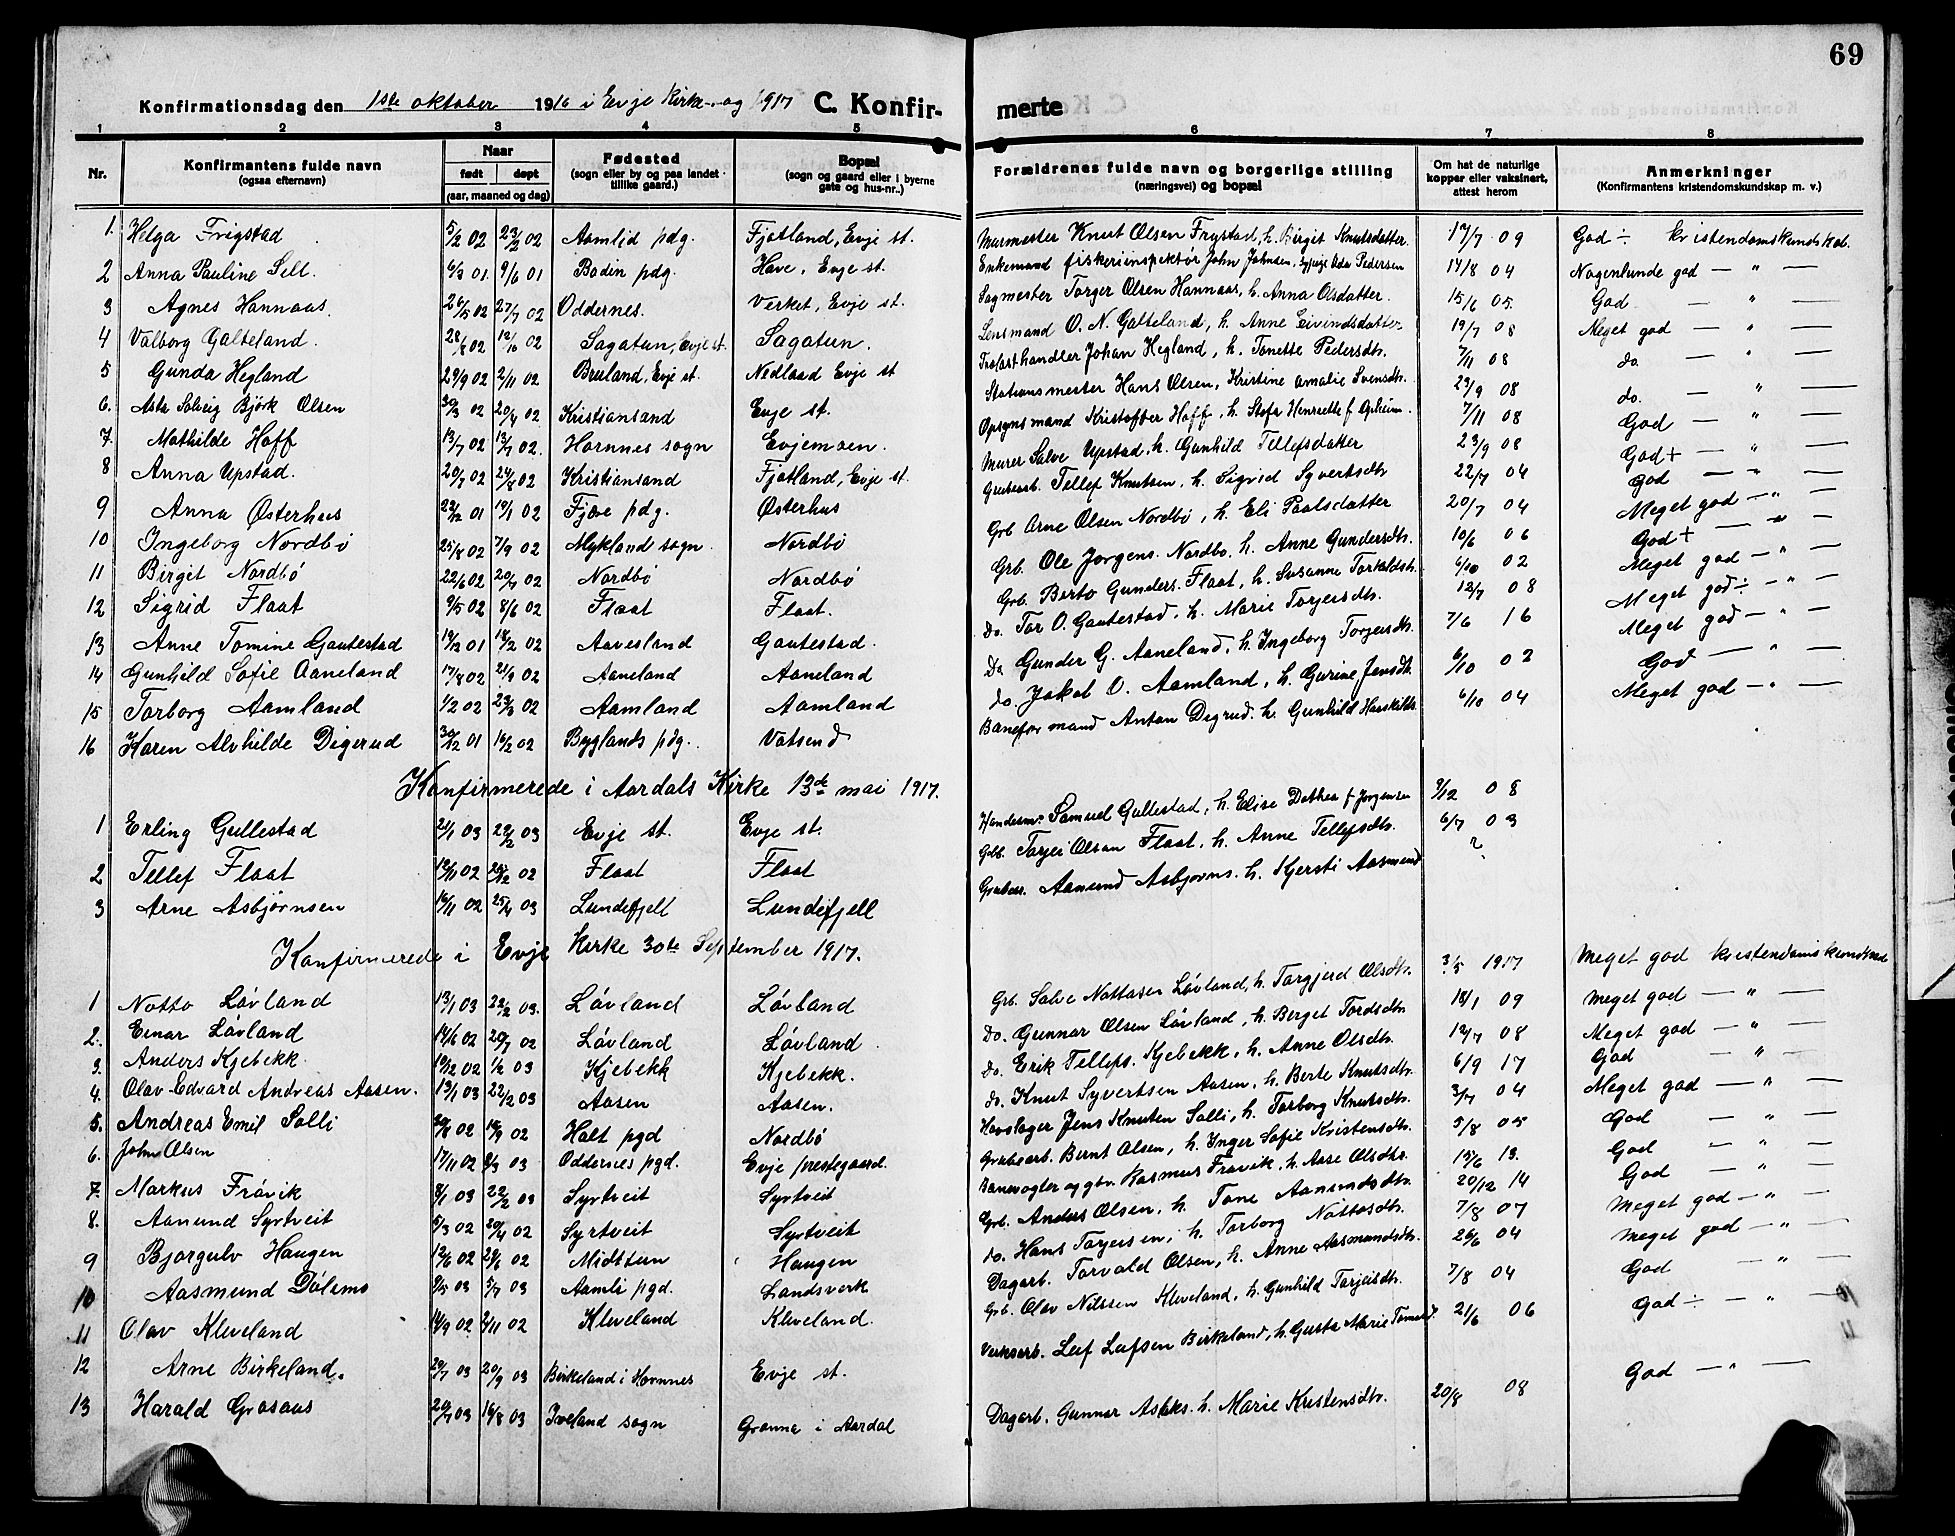 69
Konfirmationsdag den 1ste oktober 1916 i Evje Kirke og 1917 C. Konfir- merte
1 2 3 4 5 6 7 8
Nr. Konfirmantens fulde navn (ogsaa efternavn) Naar født døpt (aar, maaned og dag) Fødested (sogn eller by og paa landet tillike gaard.) Bopæl (sogn og gaard eller i byerne gate og hus-nr..) Forældrenes fulde navn og borgerlige stilling (næringsvei) og bopæl Om hat de naturlige kopper eller vaksinert, attest herom Anmerkninger (Konfirmantens kristendomskundskap m. v.)
1. Helga Frigstad 5/2 02 23/2 02 Aamlid pdg. Fjotland, Evje st. Murmester Knut Olsen Frystad, h. Birgit Knutsdatter. 17/7 09 God ÷ kristendomskundskab.
2 Anna Pauline Selt. 6/3 01. 9/6 01 Bodin pdg. Have, Evje st. Enkemand fiskeriinspektør John Johnsen, Oda Pedersen 14/8 04 Nogenlunde god — " —
3 Agnes Hannaas. 26/5 02 27/7 02 Oddernes. Verket, Evje st. Sagmester Torger Olsen Hannaas, h. Anna Olsdatter. 15/6 05. God. — " —
4 Valborg Galteland. 28/8 02 12/10 02 Sagatun, Evje st. Sagatun. Lensmand O. N. Galteland, h. Anne Eivindsdatter 19/7 08 Meget god — " —
5 Gunda Hegland 29/9 02 2/11 02 Bruland, Evje st. Nedland Evje st Trelasthandler Johan Hegland, h. Tonette Pedersdtr. 7/11 08 do. — " —
6. Asta Solveig Björk Olsen 30/3 02 20/4 02 Kristiansand Evje st. Stationsmester Hans Olsen, Kristine Amalie Svensdtr. 23/9 08 do. — " —
7. Mathilde Hoff 13/7 02 13/7 02. Hornnes sogn Evjemoen. Opsynsmand Kristoffer Hoff, h. Stefa Henriette f. Opheim. 7/11 08 God — " —
8 Anna Upstad. 20/7 02 24/8 02 Kristiansand Fjotland, Evje st. Murer Salve Upstad, h. Gunhild Tellefsdatter 23/9 08 God + — " —
9 Anna Østerhus 22/12 01 19/1 02 Fjære pdg. Østerhus Grubearb. Tellef Knutsen, h. Sigrid Syvertsdtr 22/7 04 God — " —
10 Ingeborg Nordbø 25/8 02 7/9 02 Mykland sogn. Nordbø Grb. Arne Olsen Nordbø, h. Eli Paalsdatter 20/7 04 Meget god — " —
11 Birgit Nordbø 22/6 02 20/7 02 Nordbø Nordbø Grb. Ole Jorgens. Nordbo. h. Anne Gundersdtr. 10/6 06 God + — " —
12 Sigrid Flaat 9/5 02 8/6 02 Flaat Flaat. Grb. Berto Gunders. Flaat, h. Susanne Torkeldsdtr. 6/10 02 Meget god — " —
13 Anne Tomine Gautestad 19/12 01 18/2 02 Aavesland Gautestad. Do. Tor O. Gautestad, h. Marie Torjersdtr. 12/7 08 Meget god ÷ — " —
14 Gunhild Sofie Aaneland 17/8 02 21/9 02 Aaneland Aaneland Do Gunder G. Aaneland, h. Ingeborg Torjersdtr. 7/6 16 Meget god — " —
15 Torborg Aamland 1/2 02 23/3 02 Aamland Aamland do. Jakob O. Aamland, h. Gurine Jensdtr. 6/10 02 God — " —
16 Karen Alvhilde Digerud 30/12 01 16/2 02 Byglands pdg.. Vatsend Baneformand Anton Digrud. h. Gunhild 6/10 04 Meget god — " —
Konfirmerede i Aardals Kirke 13de mai 1917.
1 Erling Gullestad 21/1 03 22/2 03 Evje st. Evje st. Samuel Gullestad, h. Elise Dothea f. Jorgensen 3/12 08
2 Tellef Flaat 12/11 02 26/12 02 Flaat Flaat Gbb. Torjei Olsen Flaat, h. Anne Tellefsdtr. 6/7 03
3 Arne Asbjørnsen 16/11 02 25/4 03 Lundefjell Lundefjell Grubear. Aamund Asbjorns. h. Kjersti Aasmund ?
Konfirmerede i Evje Kirke 30te September 1917.
1 Notto Lóvland 13/1 03 22/2 03. Lóvland Lóvland Grb. Salve Nottasen Lóvland, h. Torgjerd Olsdtr. 3/5 1917 Meget god kristendomskundskab
2. Einar Lóvland 14/6 02 20/7 02 Lóvland Lóvland Do. Gunnar Olsen Lóvland, h. Berget Tordsdtr. 18/1 09 Meget god — " —
3. Anders Kjebekk. 19/12 02 1/2 03 Kjebekk Kjebekk. Do. Erik Tellefs. Kjebekk, h. Anne Olsdtr. 12/7 08 Meget god — " —
4. Olav Edvard Andreas Aasen. 13/1 03 22/2 03 Aasen Aasen. do. Knut Syvertsen Aasen, h. Berte Knutsdtr. 6/9 17 God — " —
5. Andreas Emil Solli 30/8 02 18/9 02 Holt pgd Nordbõ Hovslager Jens Knutsen Solli, h. Torborg Knutsdtr. 3/7 04 Meget god — " —
6. John Olsen 17/11 02 8/3 03 Oddernes pgd. Evje prestegaard. Grubearb. Bernt Olsen, h. Inger Sofie Kristensdtr. 5/8 05 God — " —
7. Markus Fróvik 8/1 03 22/2 03 Syrtveit Syrtveit Banevogter og gbr. Rasmus Frovik. h. Aase Olsdtr. 13/6 13. God — " —
8. Aanund Syrtveit 5/3 02 20/4 02 Syrtveit Syrtveit Grb. Anders Olsen, h. Tone Aanundsdtr. 20/12 14 God — " —
9 Bjorgulv Haugen 12/6 02 29/6 02 Midttun Haugen do. Hans Torjersen, h. Torborg Nottosdtr. 7/8 07 Meget god — " —
10 Aasmund Dólemo 9/5 03 5/7 03 Aamli pgd. Landsverk Dagarb. Torvald Olsen, h. Anne Aasmundsdtr. 26/6 04 Meget god — " —
11 Olav Kleveland 14/9 02 2/11 02 Kleveland Kleveland. Grb. Olav Nilssen Kleveland, h. Gunhild Torjeisdtr. 7/8 04 God — " —
12 Arne Birkeland. 29/7 03 20/9 03 Birkeland i Hornnes Evje st. Verksarb. Leif Leifsen Birkeland, h. Gusta Marie 21/6 06 God ÷ — " —
13 Harald Grosaas 20/7 03 16/8 03 Iveland sogn Gronna i Aardal Dagarb. Gunnar Aslaks. h. Marie Kristensdtr. 20/8 08 God — " —